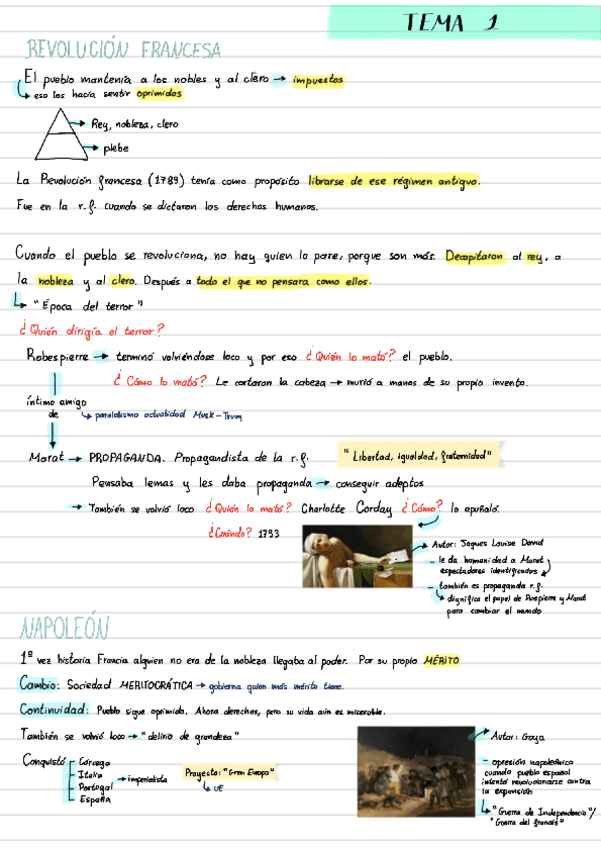 TEMA 1
REVOLUCIÓN FRANCESA
El pueblo mantenía a los nobles y al clero → impuestos
↳ eso les hacía sentir oprimidos
→ Rey, nobleza, clero
→ plebe
La Revolución francesa (1789) tenía como propósito librarse de ese régimen antiguo.
Fue en la r.f. cuando se dictaron los derechos humanos.
Cuando el pueblo se revoluciona, no hay quien lo pare, porque son más. Decapitaron al rey, a
la nobleza y al clero. Después a todo el que no pensara como ellos.
↳ "Época del terror"
¿Quién dirigía el terror?
Robespierre → terminó volviéndose loco y por eso ¿Quién lo mató? el pueblo.
¿Cómo lo mató? Le cortaron la cabeza → murió a manos de su propio invento.
íntimo amigo
de
↳ paralelismo actualidad Musk-Trum
Marat → PROPAGANDA. Propagandista de la r.f. "Libertad, igualdad, fraternidad"
Pensaba lemas y les daba propaganda → conseguir adeptos
→ También se volvió loco ¿Quién lo mató? Charlotte Corday ¿Cómo? lo apuñaló.
¿Cuándo? 1793
Autor: Jaques Louise David
- le da humanidad a Marat
espectadores identificados
- también es propaganda r.f.
↳ dignifica el papel de Rospierre y Marat
para cambiar el mundo
NAPOLEÓN
1ª vez historia Francia alguien no era de la nobleza llegaba al poder. Por su propio MÉRITO
Cambio: Sociedad MERITOCRÁTICA → gobierna quien más mérito tiene.
Continuidad: Pueblo sigue oprimido. Ahora derechos, pero su vida aún es miserable.
También se volvió loco → "delirio de grandeza"
Conquistó
Córcega
Italia
Portugal
España
→ imperialista
Proyecto: "Gran Europa"
↳ UE
Autor: Goya
- opresión napoleónica
cuando pueblo español
intentó revolucionarse contra
la expansión
↳ "Guerra de Independencia"/
"Guerra del francés"